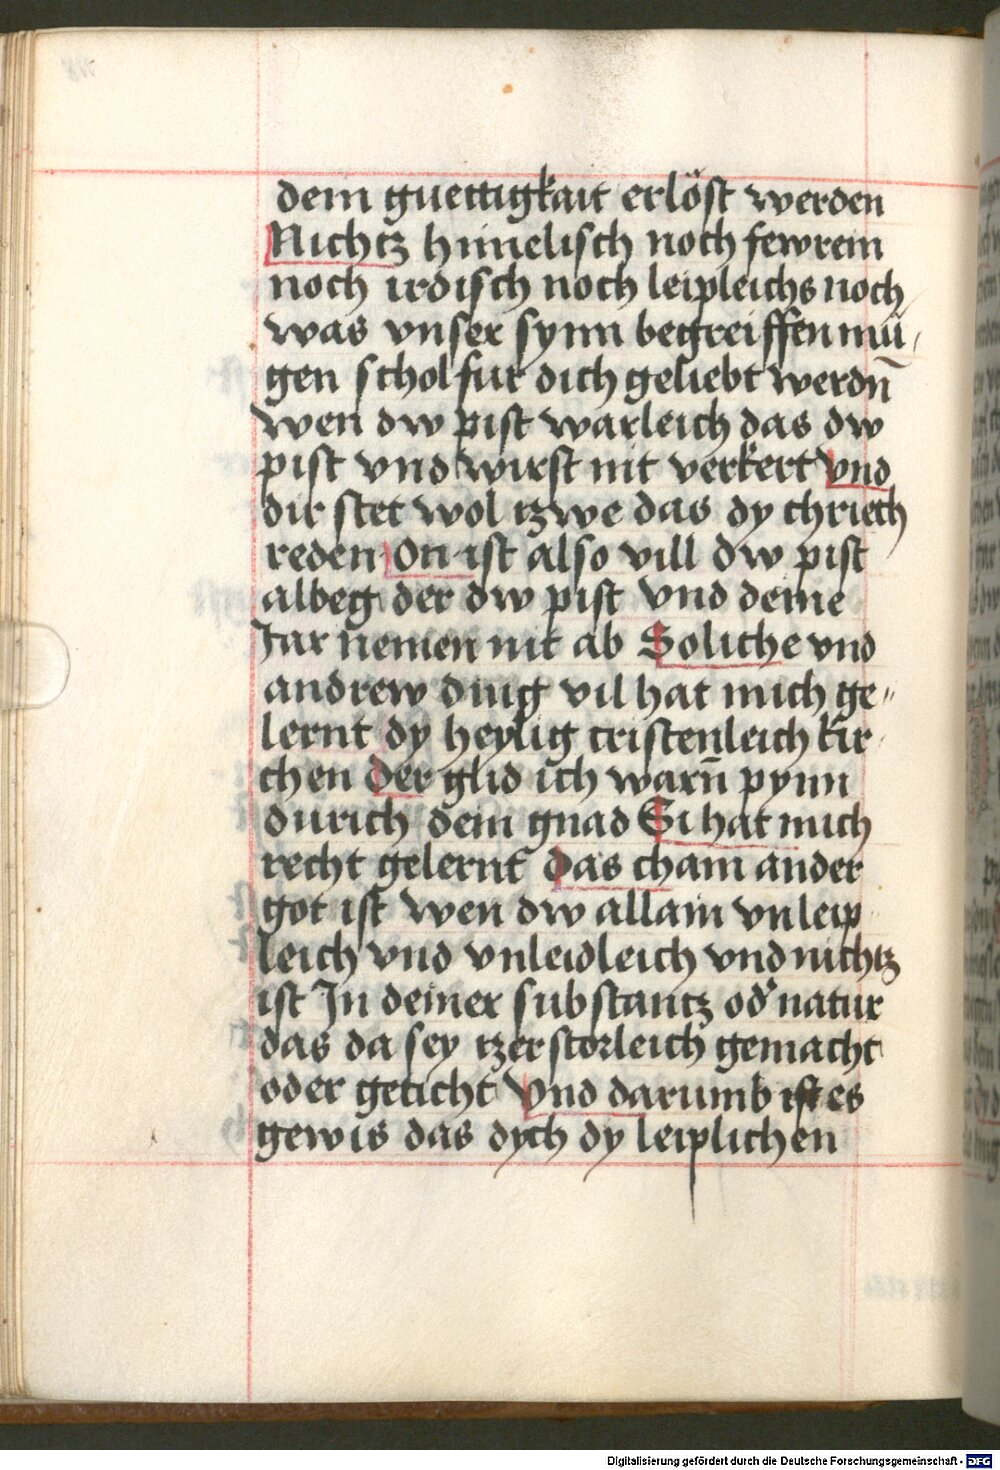 dein guettigkait erlöst werden
Nichtz himelisch noch fewrein
noch irdisch noch leipleichs noch
was vnser synn begreiffen mü,
gen schol fur dich geliebt werdn̄
wen dw pist warleich das dw
pist vnd wirst nit verkert vnd
dir stet wol tzwe das dy chriech
reden On ist also vill dw pist
albeg der dw pist vnd deine
Jar nemen nit ab Soliche vnd
andrew ding vil hat mich ge„
lernt dy heylig cristenleich kir
chen der glid ich warn̄ pynn
durich dein gnad Si hat mich
recht gelernt das chain ander
got ist wen dw allain vnleip
leich vnd vnleidleich vnd nichtz
ist In deiner substantz od' natur
das da sey tzerstorleich gemacht
oder geticht Vnd darumb ist es
gewis das dych dy leiplichen
Digitalisierung gefördert durch die Deutsche Forschungsgemeinschaft - DFG